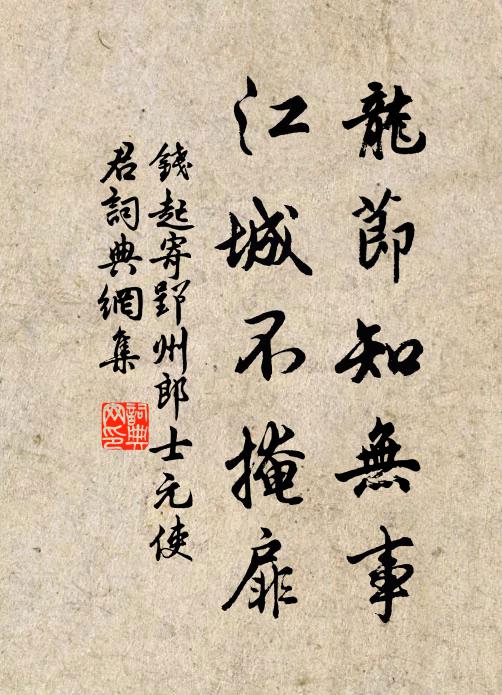 龍節知無事
江城不掩扉
錢起寄郢州郎士元使
君詞典網集
詞典
网印